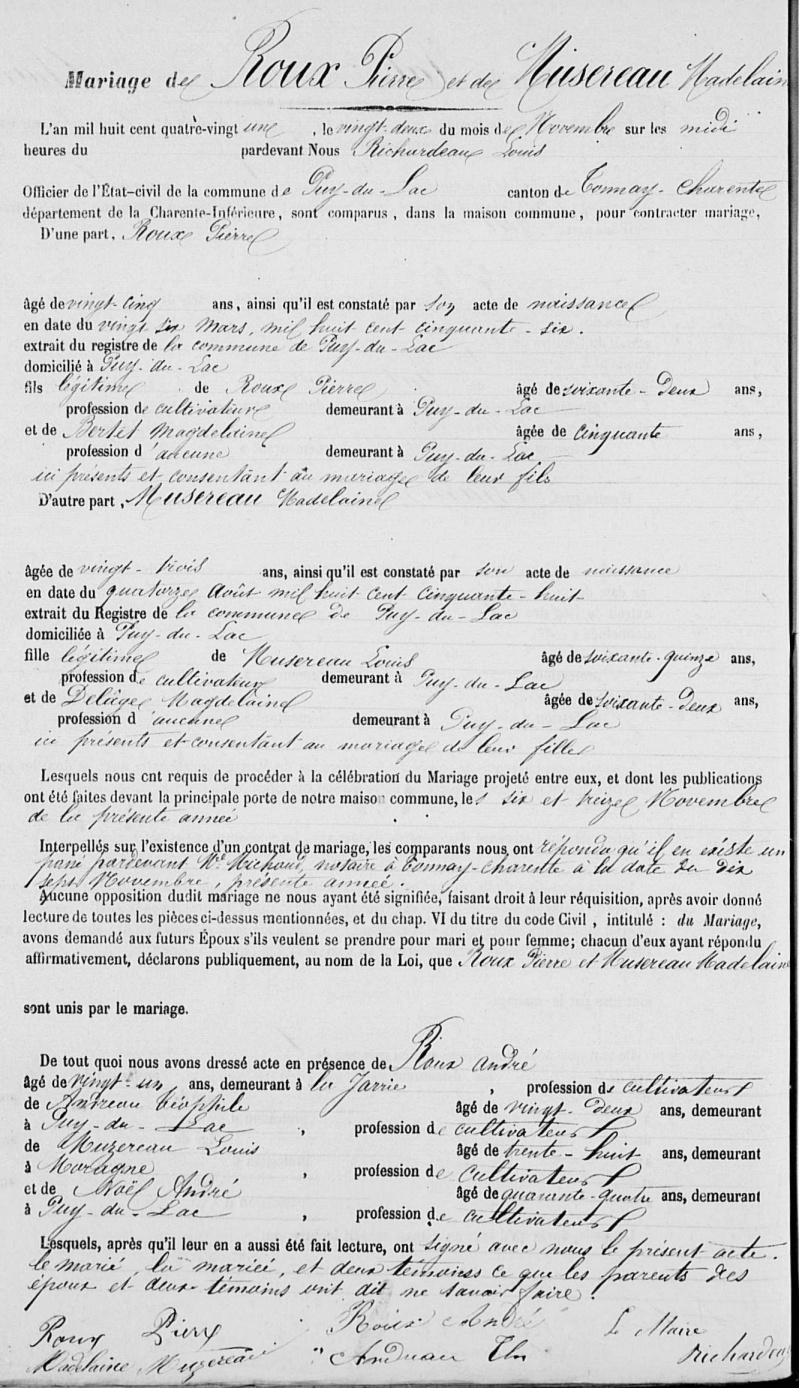 Mariage de Roux Pierre et de Musereau Madelaine
L'an mil huit cent quatre-vingt une, le vingt-deux du mois de Novembre sur les midi
heures du pardevant Nous Richardeau Louis
Officier de l'État-civil de la commune de Puy-du-Lac canton de Tonnay-Charente
département de la Charente-Inférieure, sont comparus, dans la maison commune, pour contracter mariage,
D'une part, Roux Pierre
âgé de vingt-cinq ans, ainsi qu'il est constaté par son acte de naissance
en date du vingt six Mars, mil huit cent cinquante-six.
extrait du registre de la commune de Puy-du-Lac
domicilié à Puy-du-Lac
fils légitime de Roux Pierre âgé de soixante-Deux ans,
profession de cultivateur demeurant à Puy-du-Lac
et de Bertet Magdelaine âgée de cinquante ans,
profession d'aucune demeurant à Puy-du-Lac
ici présents et consentant au mariage de leur fils
D'autre part, Musereau Madelaine
âgée de vingt-trois ans, ainsi qu'il est constaté par son acte de naissance
en date du quatorze Août mil huit cent cinquante-huit
extrait du Registre de la commune de Puy-du-Lac
domiciliée à Puy-du-Lac
fille légitime de Musereau Louis âgé de soixante-quinze ans,
profession de cultivateur demeurant à Puy-du-Lac
et de Delâge Magdelaine âgée de soixante-Deux ans,
profession d'aucune demeurant à Puy-du-Lac
ici présents et consentant au mariage de leur fille
Lesquels nous ont requis de procéder à la célébration du Mariage projeté entre eux, et dont les publications
ont été faites devant la principale porte de notre maison commune, les six et treize Novembre
de la présente année
Interpellés sur l'existence d'un contrat de mariage, les comparants nous ont répondu qu'il en existe un
passé pardevant Me Michaud, notaire à Tonnay-Charente à la date du dix
sept Novembre, présente année.
Aucune opposition dudit mariage ne nous ayant été signifiée, faisant droit à leur réquisition, après avoir donné
lecture de toutes les pièces ci-dessus mentionnées, et du chap. VI du titre du code Civil, intitulé : du Mariage,
avons demandé aux futurs Époux s'ils veulent se prendre pour mari et pour femme; chacun d'eux ayant répondu
affirmativement, déclarons publiquement, au nom de la Loi, que Roux Pierre et Musereau Madelaine
sont unis par le mariage.
De tout quoi nous avons dressé acte en présence de Roux André
âgé de vingt-un ans, demeurant à la Jarrie, profession de cultivateur
de Andreau Téophile âgé de vingt-deux ans, demeurant
à Puy-du-Lac, profession de cultivateur
de Muzereau Louis âgé de trente-huit ans, demeurant
à Moragne, profession de cultivateur
et de Noël André âgé de quarante-quatre ans, demeurant
à Puy-du-Lac, profession de cultivateur
Lesquels, après qu'il leur en a aussi été fait lecture, ont signé avec nous le présent acte.
le marié, la mariée, et deux témoins ce que les parents des
époux et deux témoins ont dit ne savoir faire.
Roux Pierx Roux André Le Maire
Madelaine Muzereau Andreau Th Richardeau